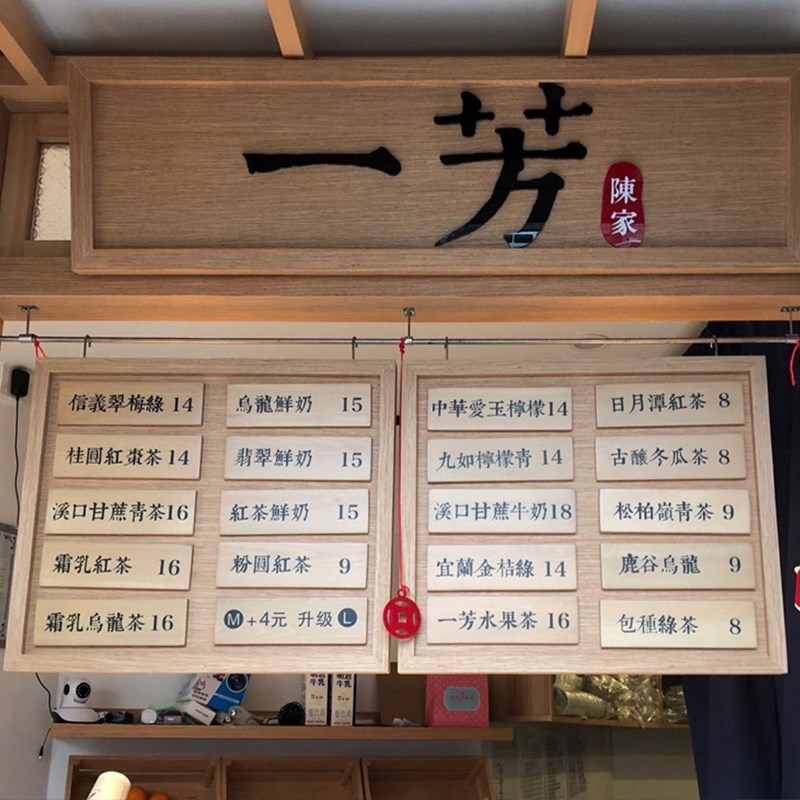 一芳
陳家
信義翠梅綠 14
桂圓紅棗茶 14
溪口甘蔗青茶 16
霜乳紅茶 16
霜乳烏龍茶 16
烏龍鮮奶 15
翡翠鮮奶 15
紅茶鮮奶 15
粉圓紅茶 9
M +4元 升级 L
中華愛玉檸檬 14
九如檸檬青 14
溪口甘蔗牛奶 18
宜蘭金桔綠 14
一芳水果茶 16
日月潭紅茶 8
古釀冬瓜茶 8
松柏嶺青茶 9
鹿谷烏龍 9
包種綠茶 8